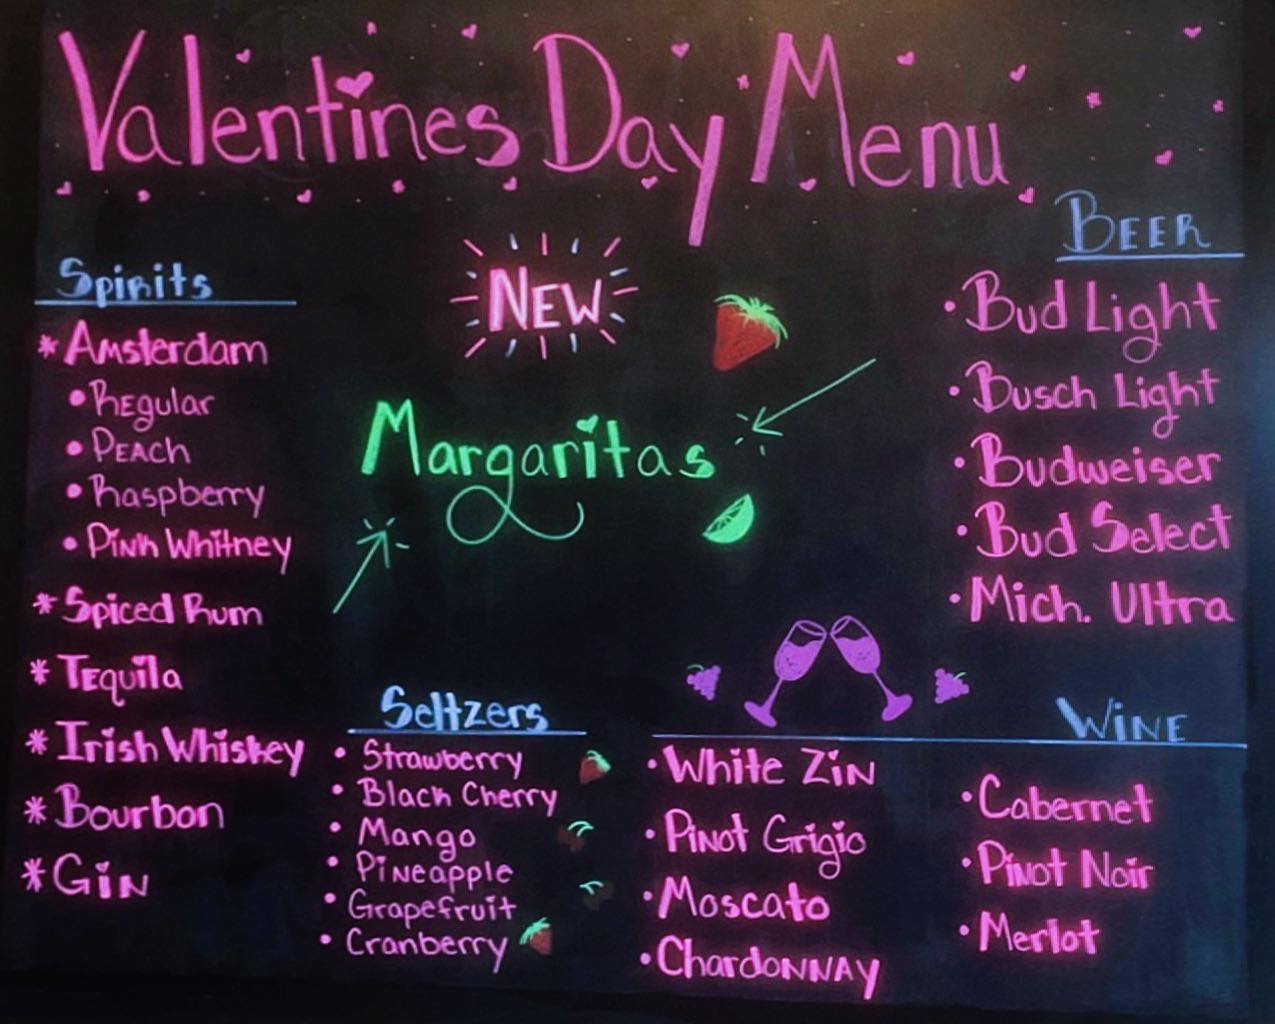 Valentines Day Menu
Spirits
* Amsterdam
• Regular
• Peach
• Raspberry
• Pink Whitney
* Spiced Rum
* Tequila
* Irish Whiskey
* Bourbon
* Gin
New
Margaritas
Seltzers
• Strawberry
• Black Cherry
• Mango
• Pineapple
• Grapefruit
• Cranberry
Beer
• Bud Light
• Busch Light
• Budweiser
• Bud Select
• Mich. Ultra
Wine
• White Zin
• Pinot Grigio
• Moscato
• Chardonnay
• Cabernet
• Pinot Noir
• Merlot